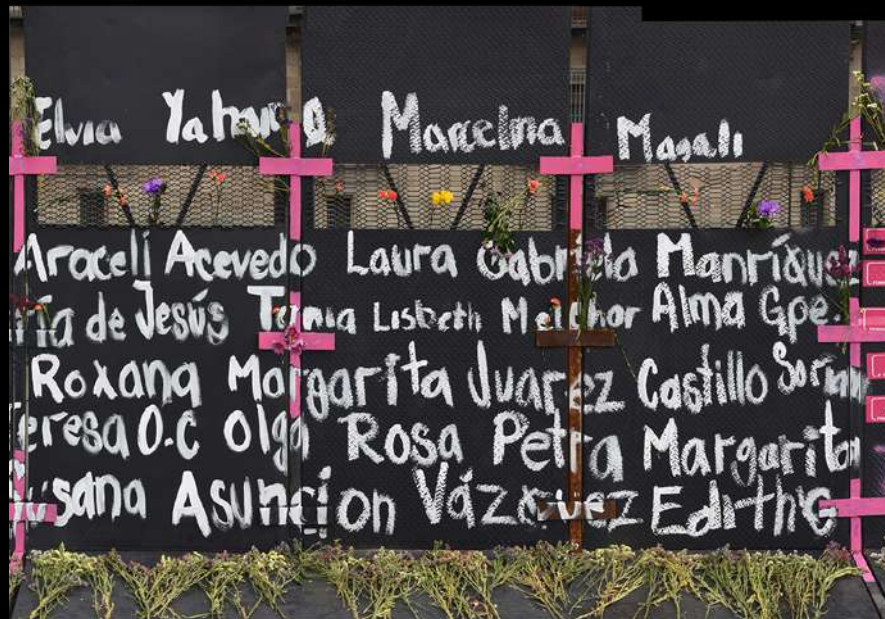 Elvia Yahaira Marcelina Magali
Araceli Acevedo Laura Gabriela Manríquez
ría de Jesús Tania Lisbeth Melchor Alma Gpe.
Roxana Margarita Juarez Castillo
eresa O.C Olga Rosa Petra Margarita
usana Asunción Vázquez Edith